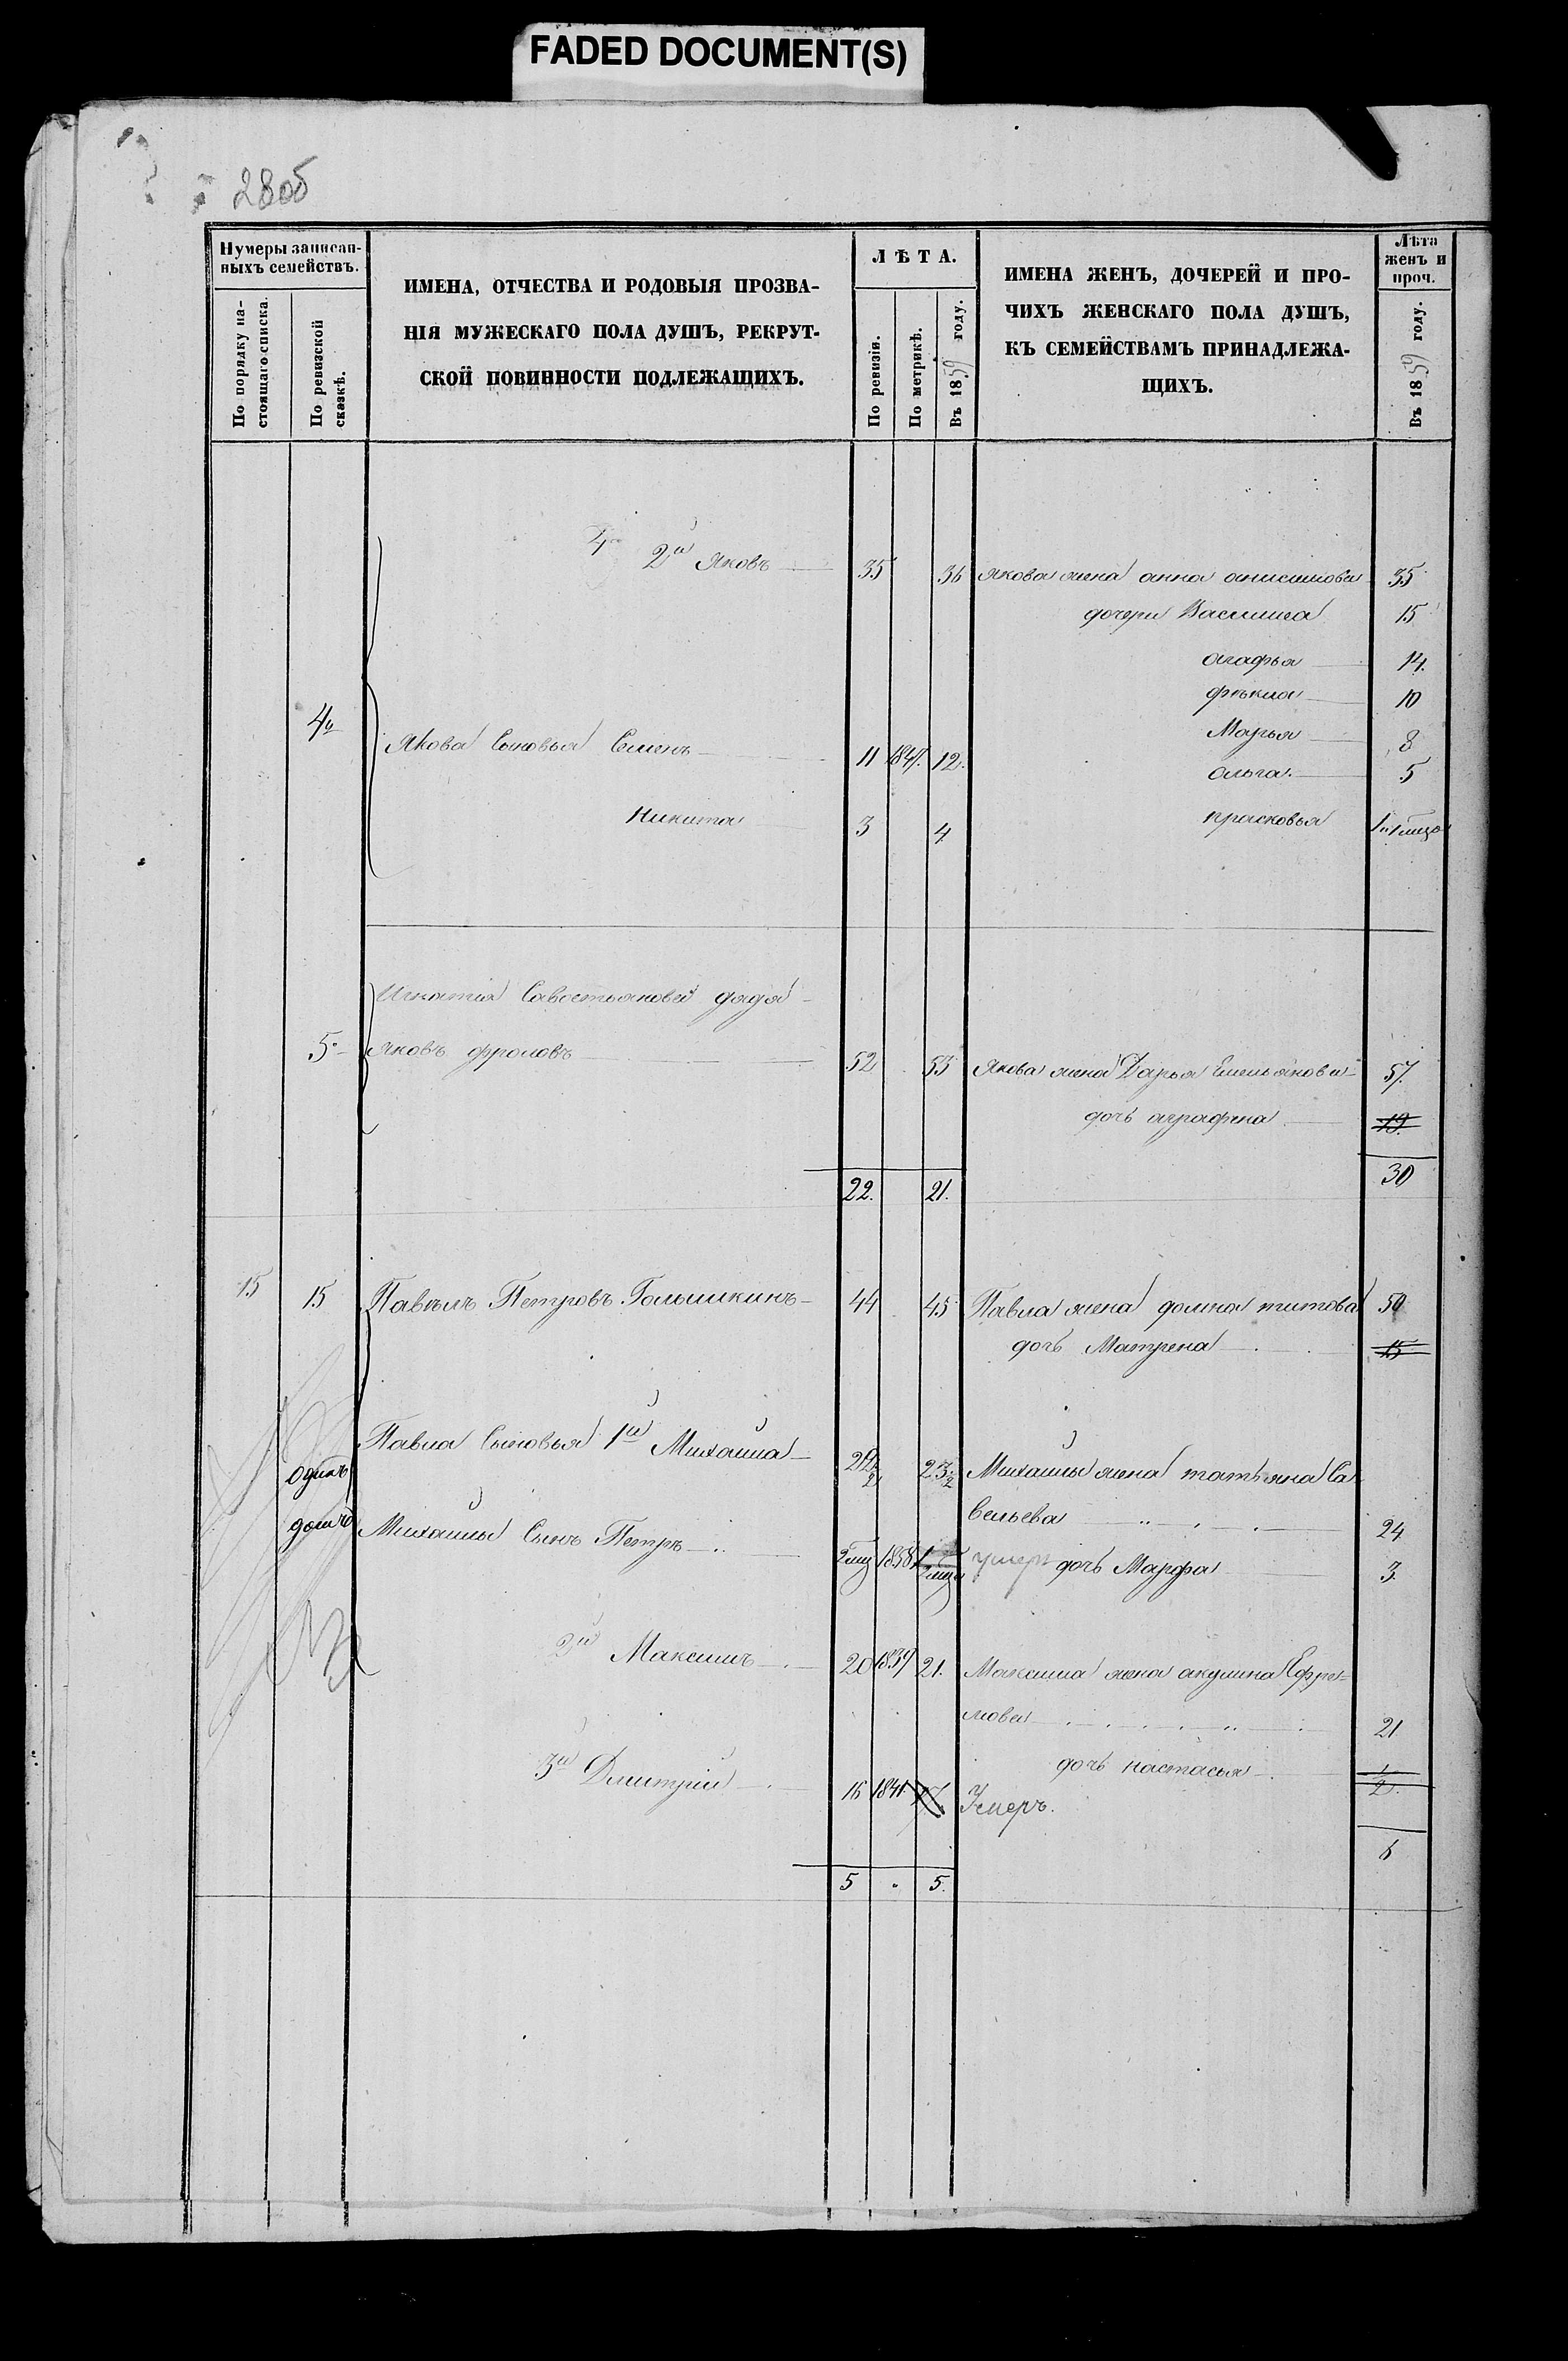 FADED DOCUMENT(S)
28 об
Нумеры записан-
ныхъ семействъ.
По порядку на-
стоящаго списка.
По ревизской
сказкѣ.
ИМЕНА, ОТЧЕСТВА И РОДОВЫЯ ПРОЗВА-
НІЯ МУЖЕСКАГО ПОЛА ДУШЪ, РЕКРУТ-
СКОЙ ПОВИННОСТИ ПОДЛЕЖАЩИХЪ.
ЛѢТА.
По ревизіи.
По метрикѣ.
Въ 1859 году.
ИМЕНА ЖЕНЪ, ДОЧЕРЕЙ И ПРО-
ЧИХЪ ЖЕНСКАГО ПОЛА ДУШЪ,
КЪ СЕМЕЙСТВАМЪ ПРИНАДЛЕЖА-
ЩИХЪ.
Лѣта
женъ и
проч.
Въ 1859 году.
2й Яковъ 35 36 Якова жена анна анисимова 35
дочери Василиса 15
агафья 14.
фекла 10
Марья 8
4 Якова Сыновья Семенъ 11 1847. 12.
ольга. 5
Никита 3 4 прасковья
Игнатія Савостьянова дядя
5 Яковъ фроловъ 52 53 Якова жена Дарья Емельянова 57.
дочь аграфена 19.
22. 21. 30
15 15 Павелъ Петровъ Голышкинъ 44 45 Павла жена домна титова 50
дочь Матрена 15
Павла Сыновья 1й Михаила 23 Михаилы жена татьяна Са
Одинъ
вельева 24
домъ Михаилы Сынъ Петръ 1858 умеръ дочь Марфа 3.
2й Максимъ 20 1839 21. Максима жена акулина Ефре=
мова 21
дочь настасья 2.
3й Дмитрій 16 1841 17. Умеръ.
6
5 5.